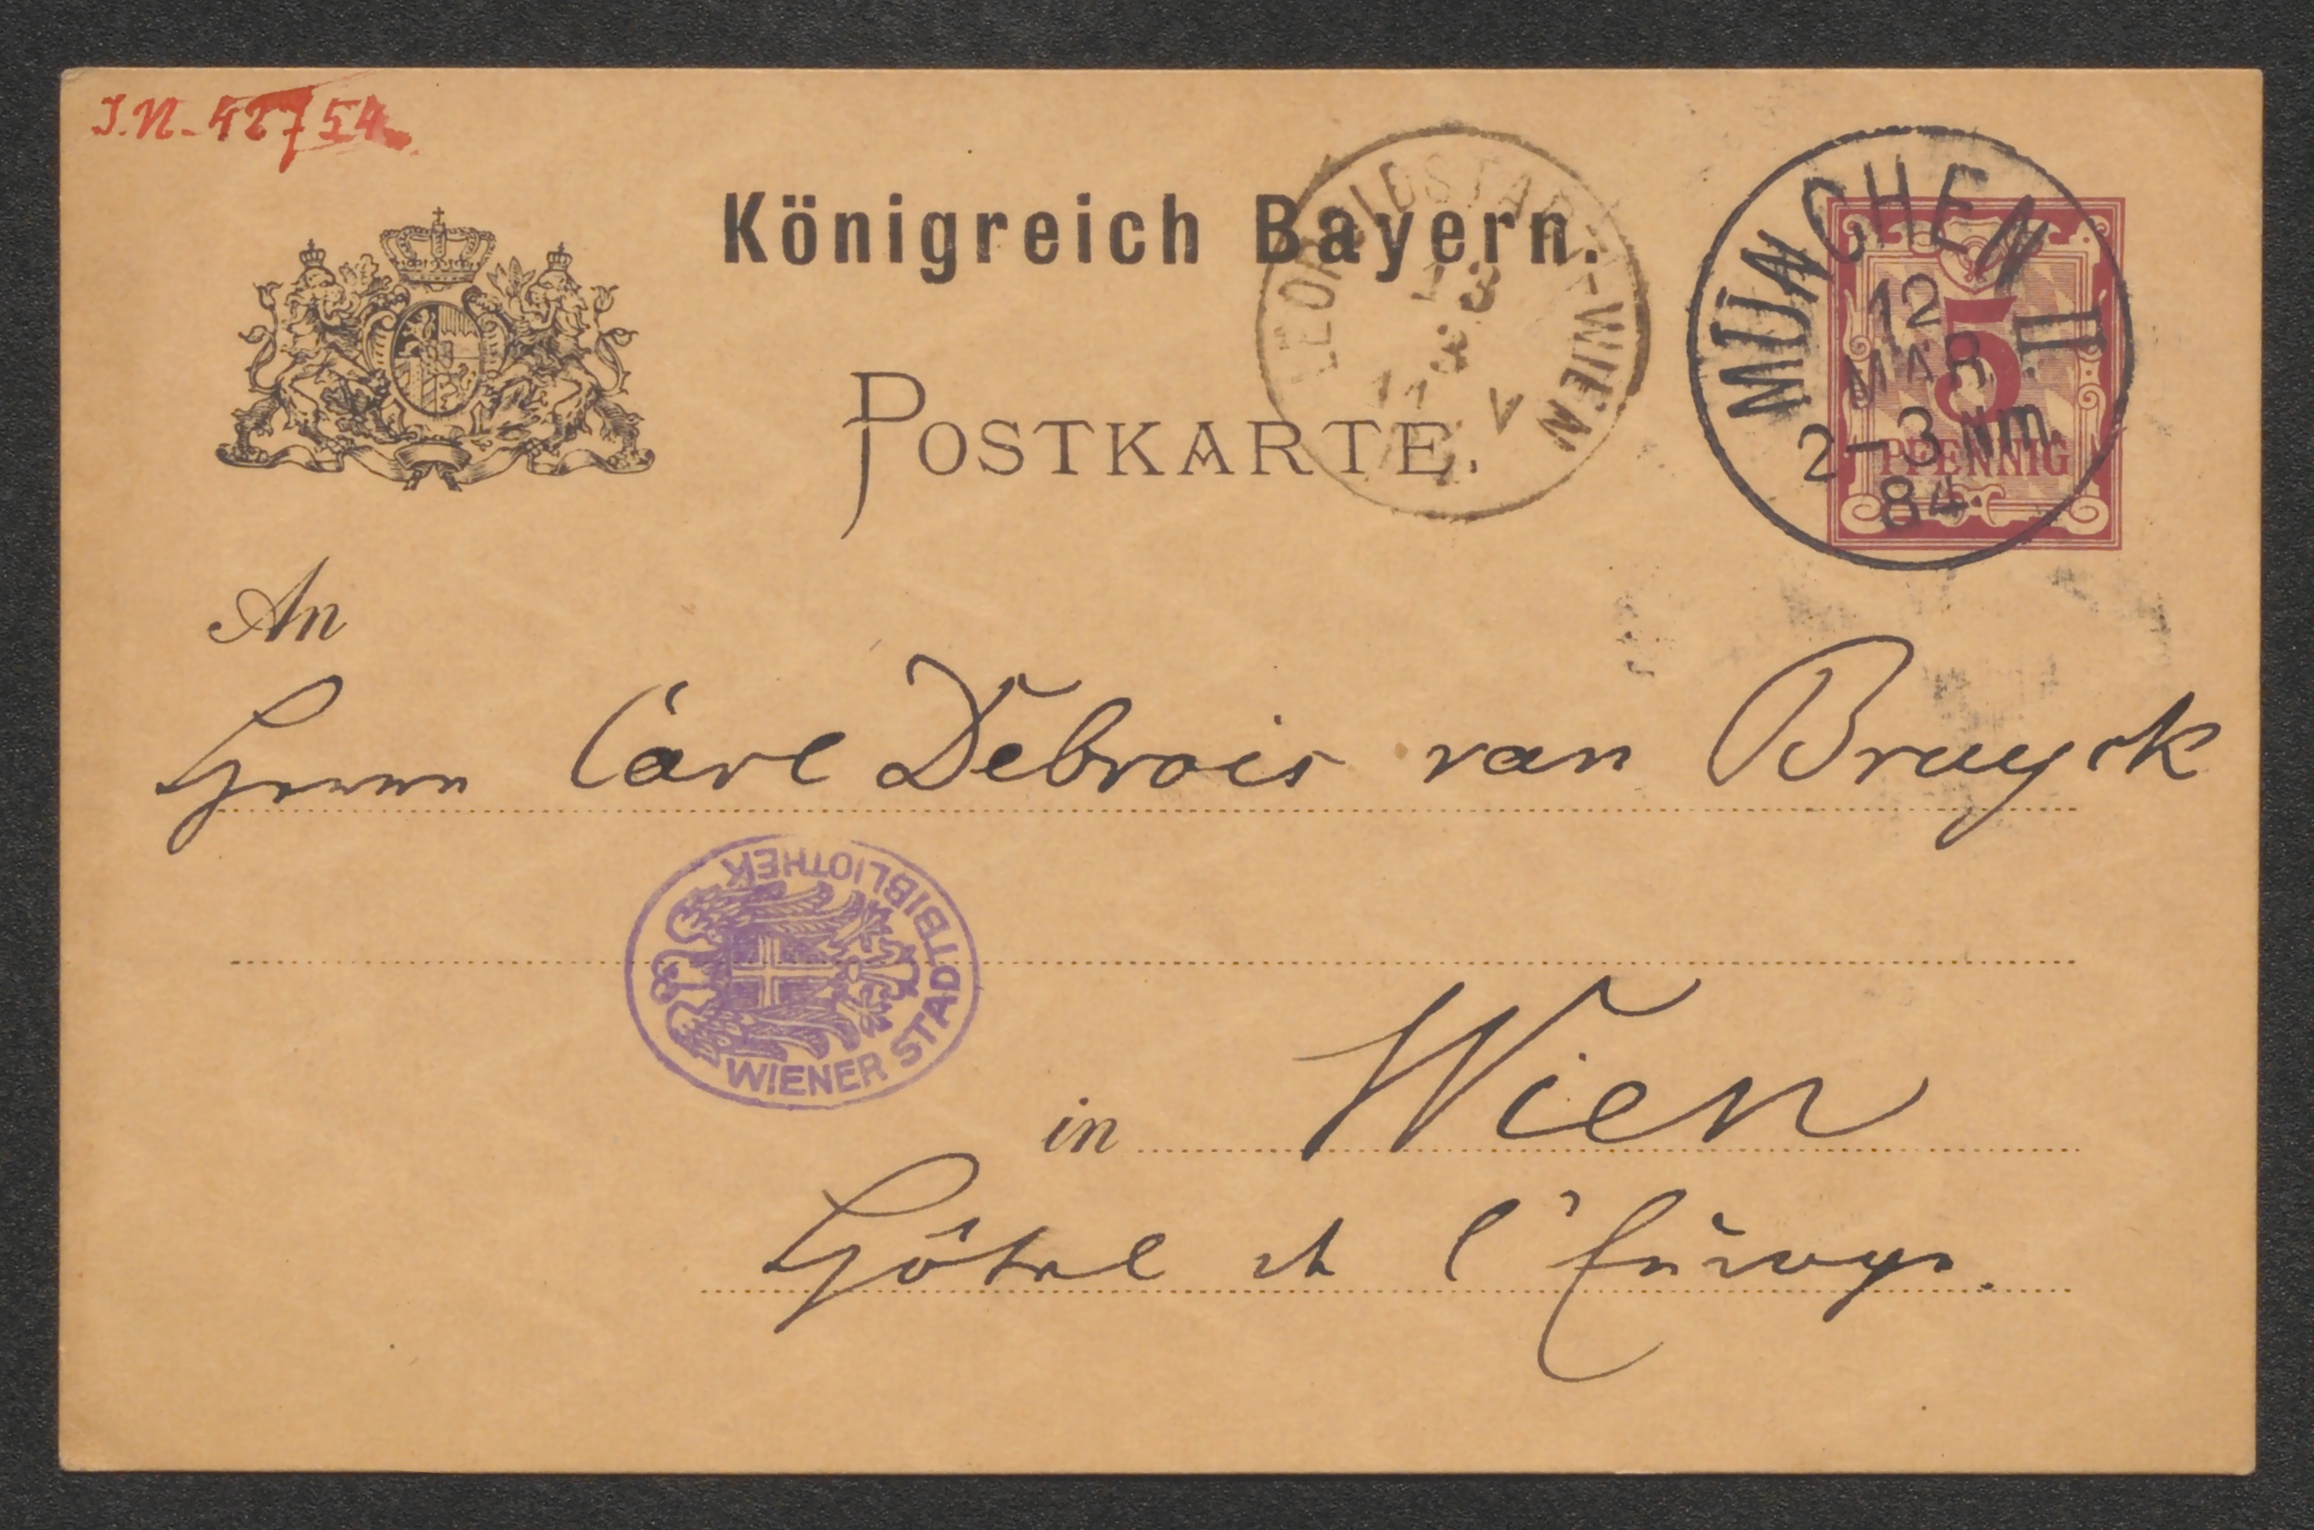 J.N. 42754
Königreich Bayern.
POSTKARTE.
LEOPOLDSTADT-WIEN
MÜNCHEN II
12
MAR.
2-3 Nm.
84
5
PFENNIG
An
Herrn Carl Debrois van Bruyck
WIENER STADTBIBLIOTHEK
in Wien
Hôtel de l'Europe.